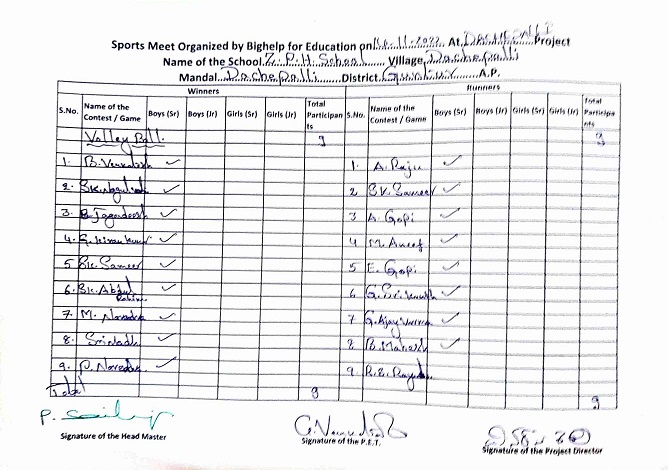 Sports Meet Organized by Bighelp for Education on 16.11.2022. At Project
Name of the School. Z.P.H. School Village, Dachepalli
Mandal. Dachepalli District. Guntur A.P.
Winners Runners
S.No. Name of the Contest / Game Boys (Sr) Boys (Jr) Girls (Sr) Girls (Jr) Total Participants S.No. Name of the Contest / Game Boys (Sr) Boys (Jr) Girls (Sr) Girls (Jr) Total Participants
Valley Ball 9 9
1. B. Venkatesh ✓ 1. A. Raju ✓
2. ✓ 2 SK. Sameer ✓
3. B. Jagadeesh ✓ 3 A. Gopi ✓
4. ✓ 4 M. Aneef ✓
5 SK. Sameer ✓ 5 E. Gopi ✓
6. SK. Abdul Rahim ✓ 6 ✓
7. M. Narendra ✓ 7 ✓
8. Srinadh ✓ 8 B. Mahesh ✓
9. ✓ 9.
Total 9 9
Signature of the Head Master Signature of the P.E.T. Signature of the Project Director